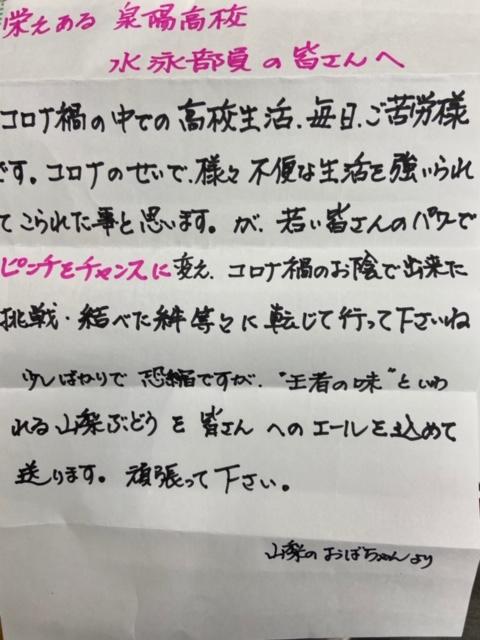 栄えある 泉陽高校
水泳部員の皆さんへ
コロナ禍の中での高校生活、毎日、ご苦労様
です。コロナのせいで、様々不便な生活を強いられ
てこられた事と思います。が、若い皆さんのパワーで
ピンチをチャンスに変え、コロナ禍のお陰で出来た
挑戦・結べた絆等々に転じて行って下さいね
少しばかりで恐縮ですが、"王者の味"といわ
れる山梨ぶどうを皆さんへのエールを込めて
送ります。頑張って下さい。
山梨のおばちゃんより